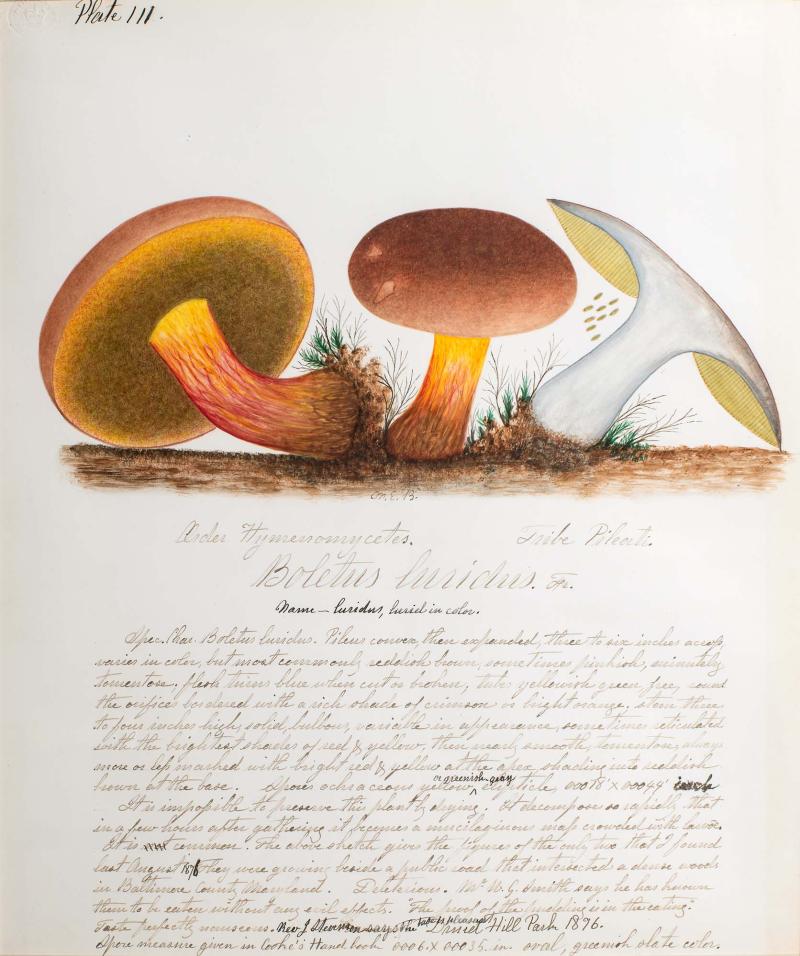 Plate III.
M. E. B.
Order Hymenomycetes. Tribe Pileati.
Boletus luridus. Fr.
Name – luridus, lurid in color.
Spec. Char. Boletus luridus. Pileus convex, then expanded, three to six inches across,
varies in color, but most commonly reddish brown, sometimes pinkish, minutely
tomentose. flesh turns blue when cut or broken, tubes yellowish green, free, round
the orifices bordered with a rich shade of crimson or bright orange, stem three
to four inches high, solid, bulbous, variable in appearance, sometimes reticulated
with the brightest shades of red & yellow, then nearly smooth, tomentose, always
more or less marked with bright red & yellow at the apex shading into reddish
brown at the base. Spores ochraceous yellow or greenish gray, elliptical, 00018' × 00044' inch
It is impossible to preserve this plant by drying. It decomposes so rapidly that
in a few hours after gathering it becomes a mucilaginous mass crowded with larvae.
It is common. The above sketch gives the figures of the only two that I found
last August 1876 they were growing beside a public road that intersected a dense woods
in Baltimore County Maryland. Deleterious. Mr W. G. Smith says he has known
them to be eaten without any evil effects. "The proof of the pudding is in the eating."
Taste perfectly nauseous. Rev. J. Stevenson says the taste is pleasant Druid Hill Park 1896.
Spore measure given in Cooke's Hand book 0006. × 00035. in. oval, greenish slate color.